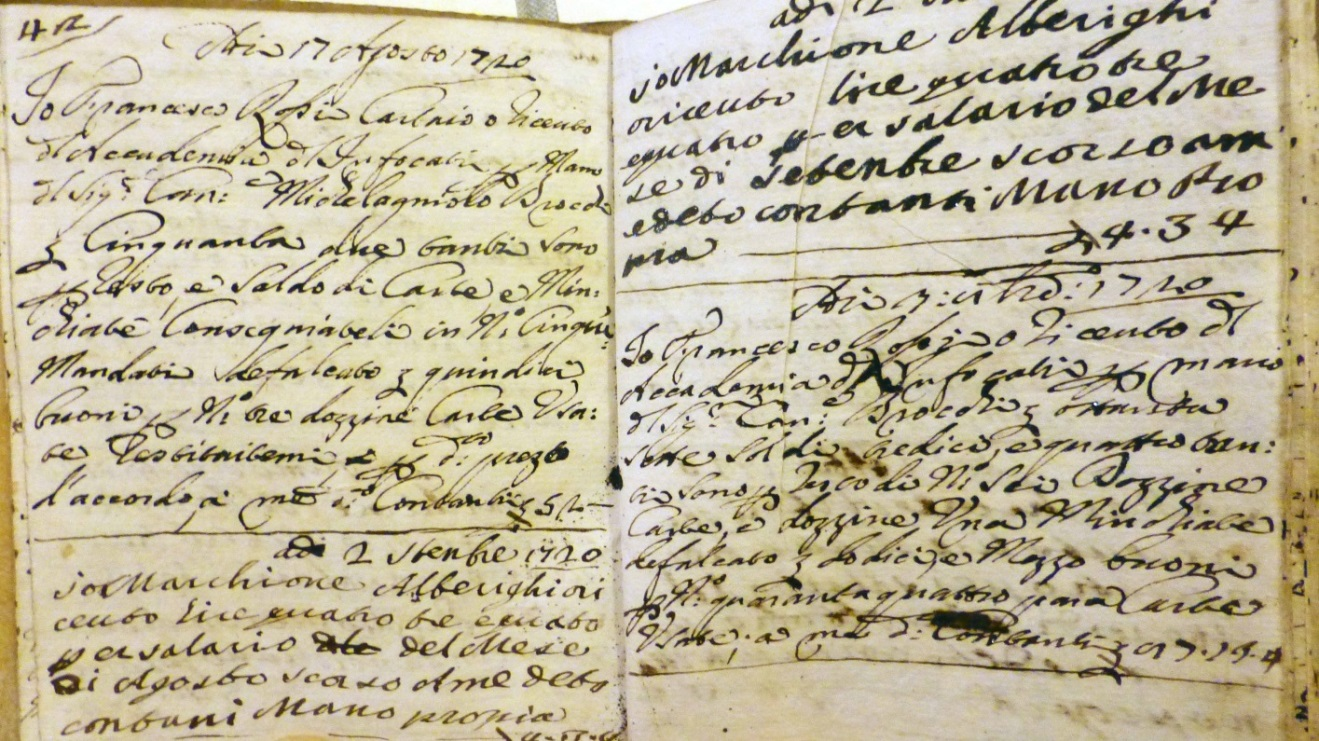 42
Adi 17 Agosto 1720
Io Francesco Rosi Cartaio o riceuto
dl Accademia dl Infocati p Mano
dl Sigr. Can: Michelagniolo Brocchi
Cinquanta due tanti sono
p Resto, e Saldo di Carte e Min:
chiate Consegniateli in No. Cinque
Mandati defalcato quindici
buoni p No. tre dozzine Carte Usa:
te Restituitemi p do. prezo
d'accordo, a me do. Contanti 52 —
adi 2 stenbre 1720
io Marchione Alberighi ori
ceuto lire quatro tre equato
per salario del Mese
di Agosto scorso Ame detto
contani Mano propia
adi 2
io Marchione Alberighi
oriceuto lire quatro tre
equatro per salario del Me
se di setenbre scorso am
edetto contanti Mano Pro
pia 4.3 4
Adi 1720
Io Francesco Rosi o riceuto dl
Accademia d Infocati p mano
dl Sigr. Can: Brocchi ottanta
sette soldi tredici, e quattro tan:
ti sono p di No. Sei Dozzine
Carte, e dozzine Una Minchiate
defalcato dodici, e Mezzo buoni
p No. quarantaquattro para Carte
Usate, a me d: Contanti